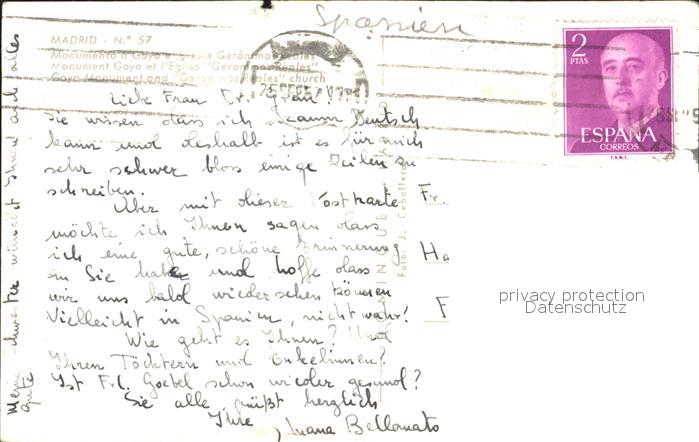 Spanien
MADRID - N.º 57
Monumento a Goya e Iglesia Gerónimos Reales
Monument Goya et l'Eglise "Geronimos Reales"
Goya Monument and "Geronimos Reales" church
2
PTAS
ESPAÑA
CORREOS
F.N.M.T.
Liebe Frau Dr.
Sie wissen dass ich kaum Deutsch
kann und deshalb ist es für mich
sehr schwer bloss einige Zeilen zu
schreiben.
Aber mit dieser Postkarte
möchte ich Ihnen sagen dass
ich eine gute, schöne Erinnerung
an Sie habe und hoffe dass
wir uns bald wiedersehen können
Vielleicht in Spanien, nicht wahr?
Wie geht es Ihnen? Und
Ihren Töchtern und Enkelinnen?
Ist Frl. Goebel schon wieder gesund?
Sie alle grüßt herzlich
Ihre, Juana
Meine Schwester wünscht Ihnen auch alles
gute
Foto: J. Cebollero
Fr.
Ha
F
privacy protection
Datenschutz